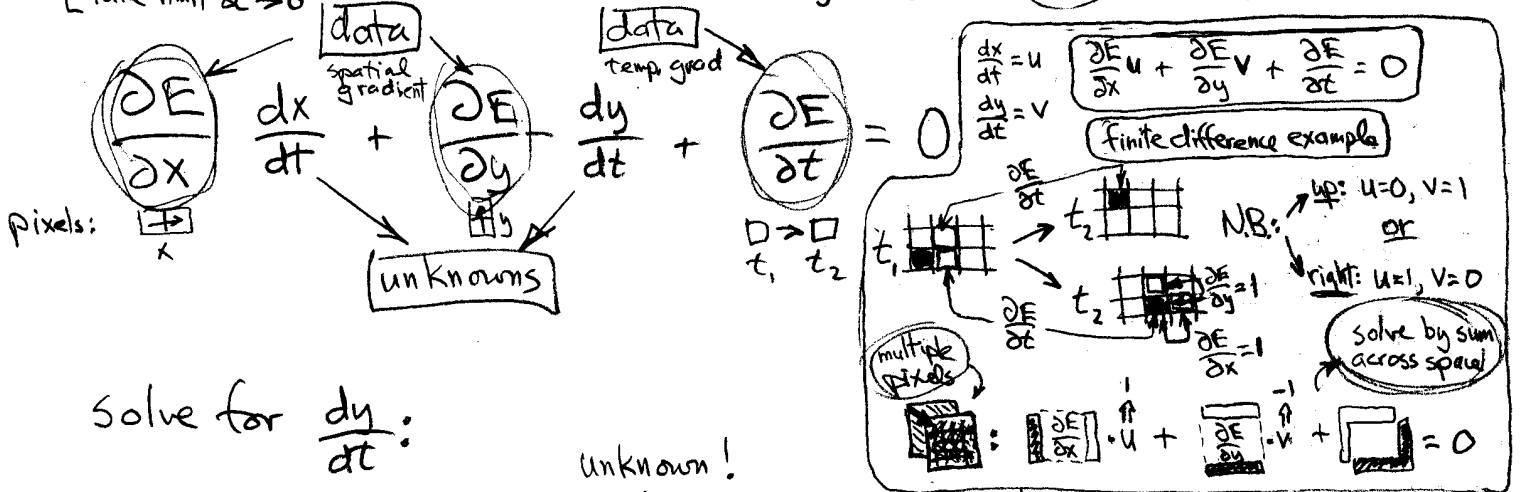 [take limit δt→0
data
spatial gradient
data
temp. grad
∂E/∂x dx/dt + ∂E/∂y dy/dt + ∂E/∂t = 0
pixels:
x
y
t₁ t₂
unknowns
solve for dy/dt:
unknown!
dx/dt = u
dy/dt = v
∂E/∂x u + ∂E/∂y v + ∂E/∂t = 0
finite difference example
∂E/∂t
t₁
t₂
N.B.:
up: u=0, v=1
or
right: u=1, v=0
t₂
∂E/∂y = 1
∂E/∂t
∂E/∂x = 1
multiple pixels
solve by sum across space!
1
-1
: ∂E/∂x · u + ∂E/∂y · v + = 0